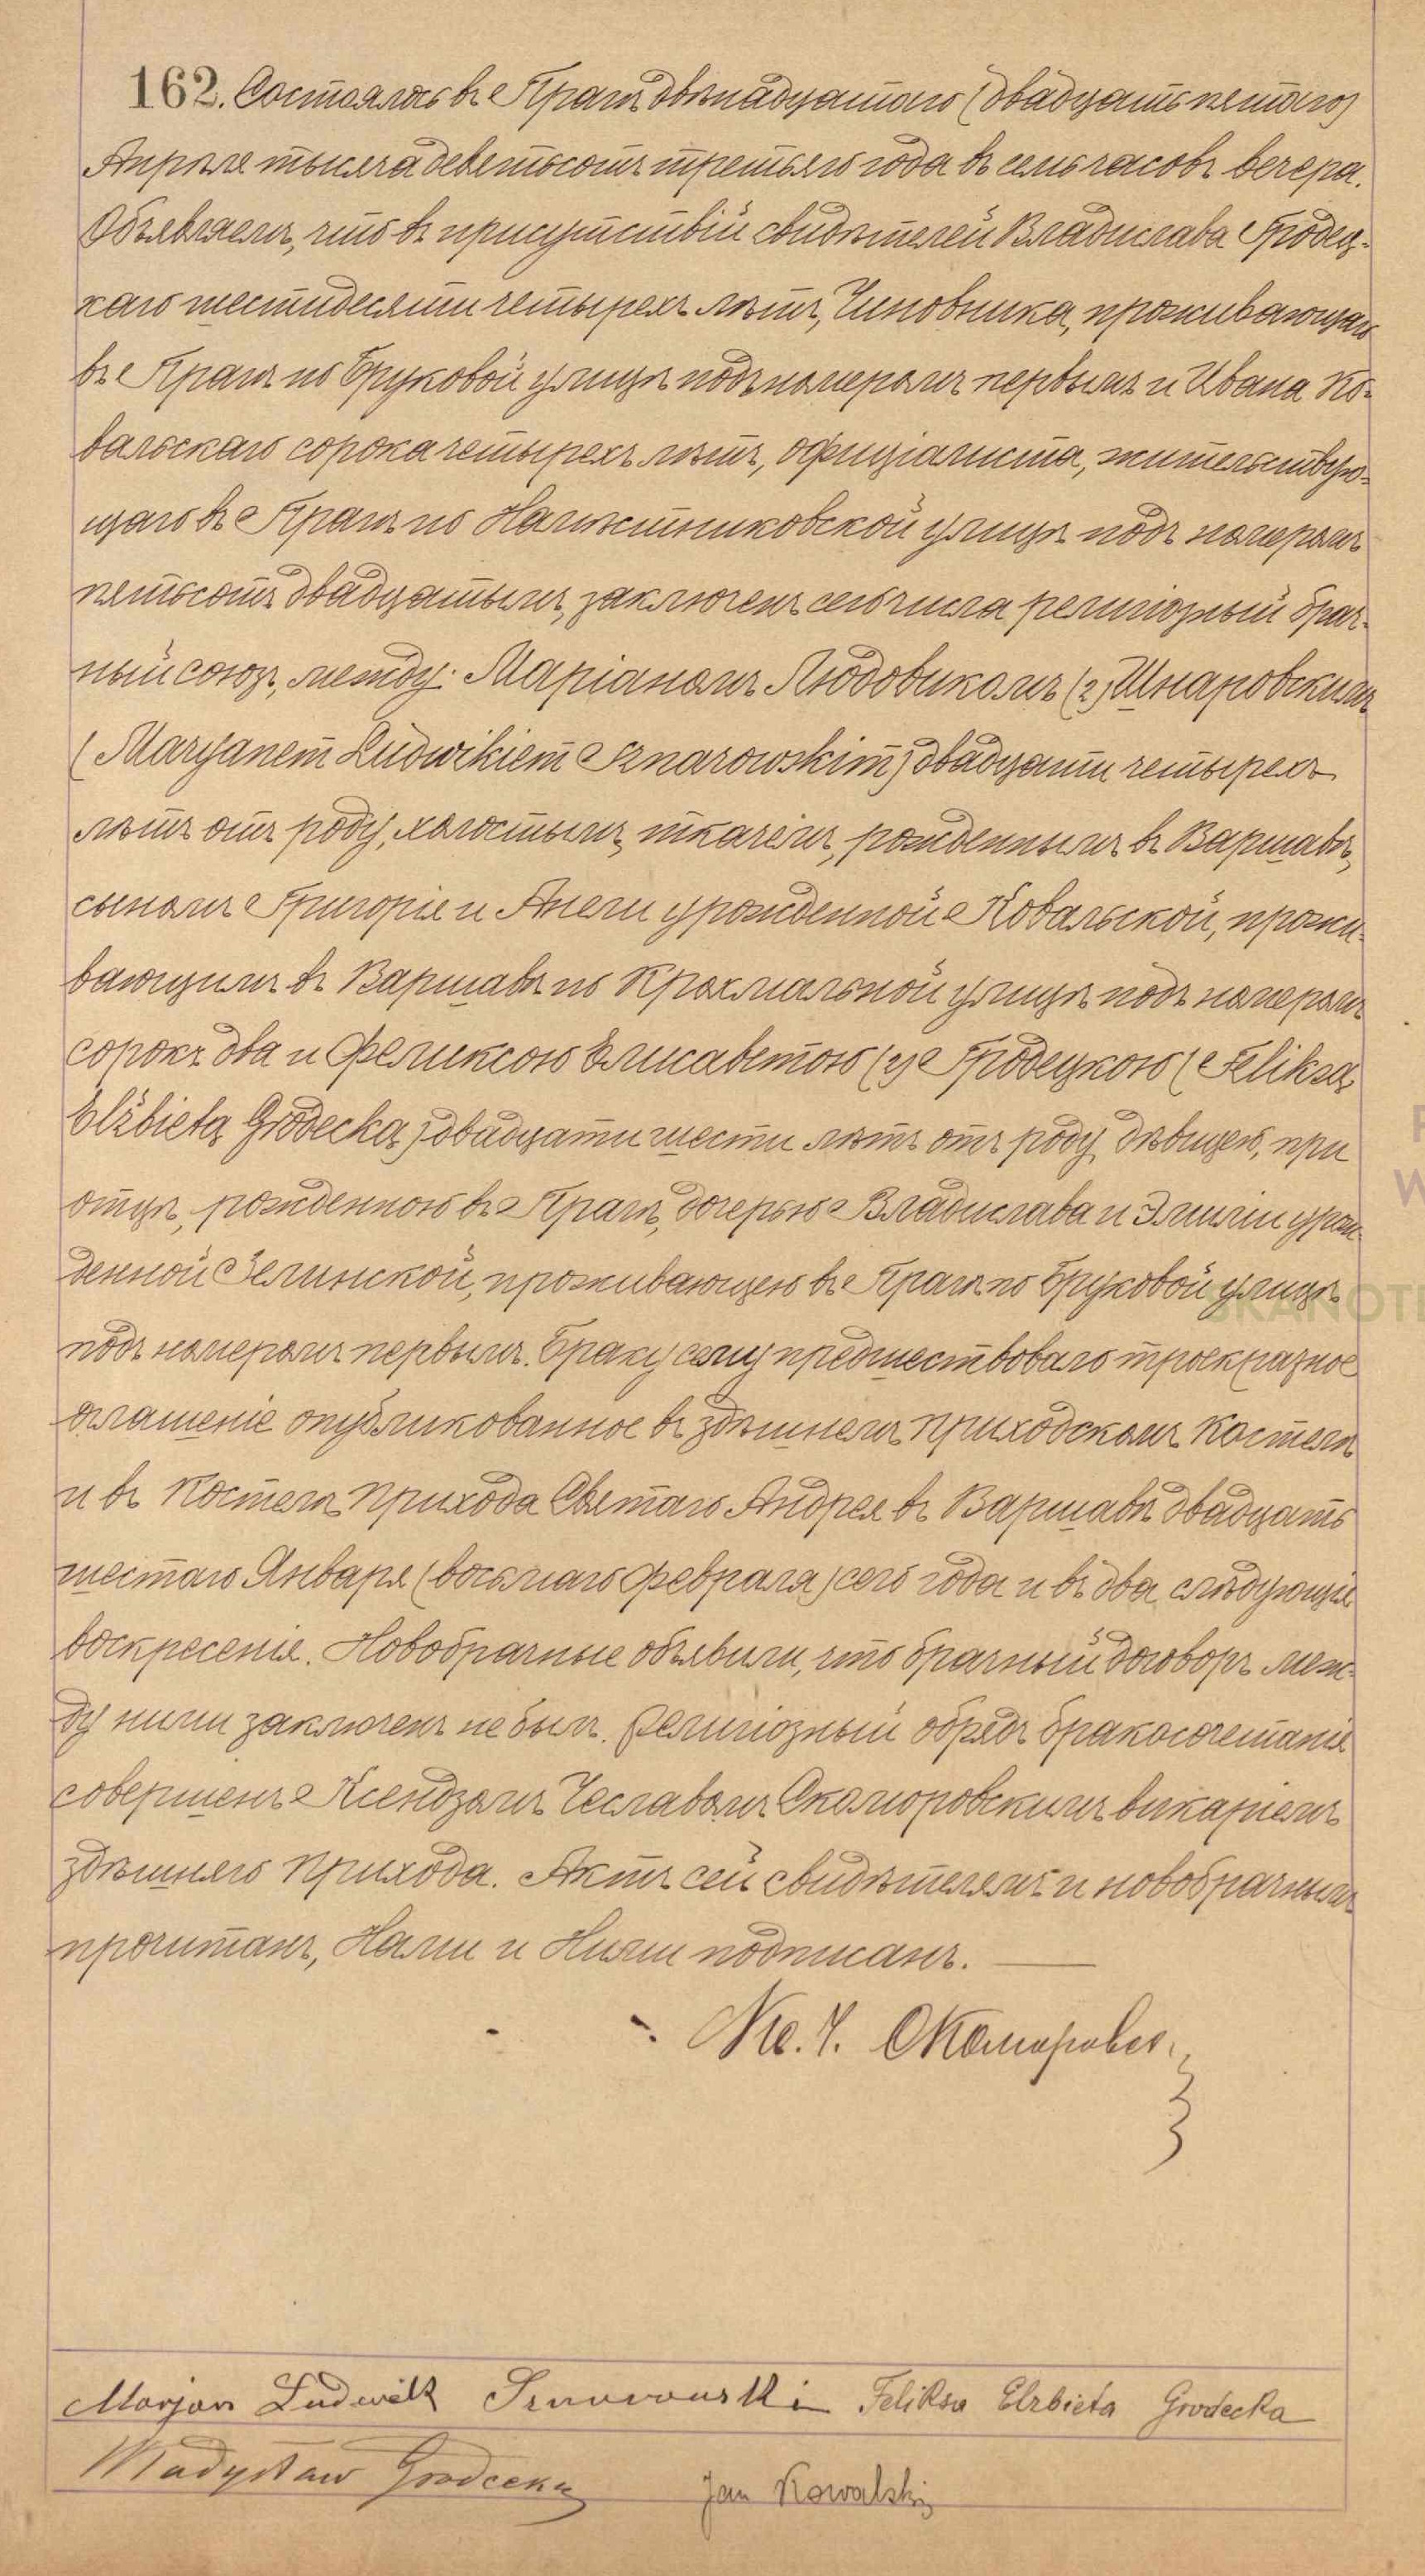 162. Состоялось въ Прагѣ двѣнадцатаго (двадцать пятаго)
Апрѣля тысяча девятьсотъ третьяго года въ семь часовъ вечера.
Объявляемъ, что въ присутствіи свидѣтелей Владислава Гродец-
каго шестидесяти четырехъ лѣтъ, Чиновника, проживающаго
въ Прагѣ по Бруковой улицѣ подъ номеромъ первымъ и Ивана Ко-
вальскаго сорока четырехъ лѣтъ, официалиста, жительствую-
щаго въ Прагѣ по Намѣстниковской улицѣ подъ номеромъ
пятьсотъ двадцатымъ, заключенъ сего числа религіозный брач-
ный союзъ, между: Маріаномъ Людовикомъ (2) Шнаровскимъ
(Maryanem Ludwikiem Sznarowskim) двадцати четырехъ
лѣтъ отъ роду, холостымъ, ткачемъ, рожденнымъ въ Варшавѣ,
сыномъ Григорія и Анели урожденной Ковальской, прожи-
вающимъ въ Варшавѣ по Крахмальной улицѣ подъ номеромъ
сорокъ два и Феликсою Елисаветою (2) Гродецкою (Feliksą
Elżbietą Grodecką) двадцати шести лѣтъ отъ роду, дѣвицею, при
отцѣ, рожденною въ Прагѣ, дочерью Владислава и Эмиліи урож-
денной Зелинской, проживающею въ Прагѣ по Бруковой улицѣ
подъ номеромъ первымъ. Браку сему предшествовало троекразное
оглашеніе опубликованное въ здѣшнемъ приходскомъ Костелѣ
и въ Костелѣ прихода Святаго Андрея въ Варшавѣ двадцать
шестаго Января (восьмаго февраля) сего года и въ два слѣдующія
воскресенія. Новобрачные объявили, что брачный договоръ меж-
ду ними заключенъ не былъ. Религіозный обрядъ бракосочетанія
совершенъ Ксендзомъ Чеславомъ Окоморовскимъ викаріемъ
здѣшняго прихода. Актъ сей свидѣтелямъ и новобрачнымъ
прочитанъ, Нами и Ними подписанъ.
Кс. Ч. Окоморовск.
Marjan Ludwik Sznarowski Feliksa Elzbieta Grodecka
Władysław Grodecki Jan Kowalski